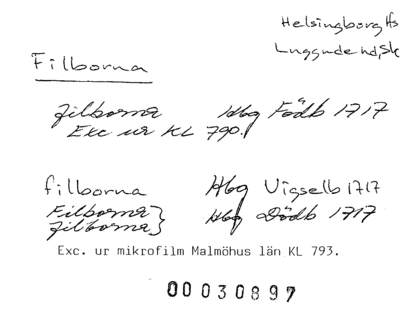 Helsingborg Hs
Luggude hd, Sk
Filborna
filborna Hbg Födb 1717
Exc ur KL 790.
filborna Hbg Vigselb 1717
Filborna } Hbg Dödb 1717
filborna }
Exc. ur mikrofilm Malmöhus län KL 793.
00030897